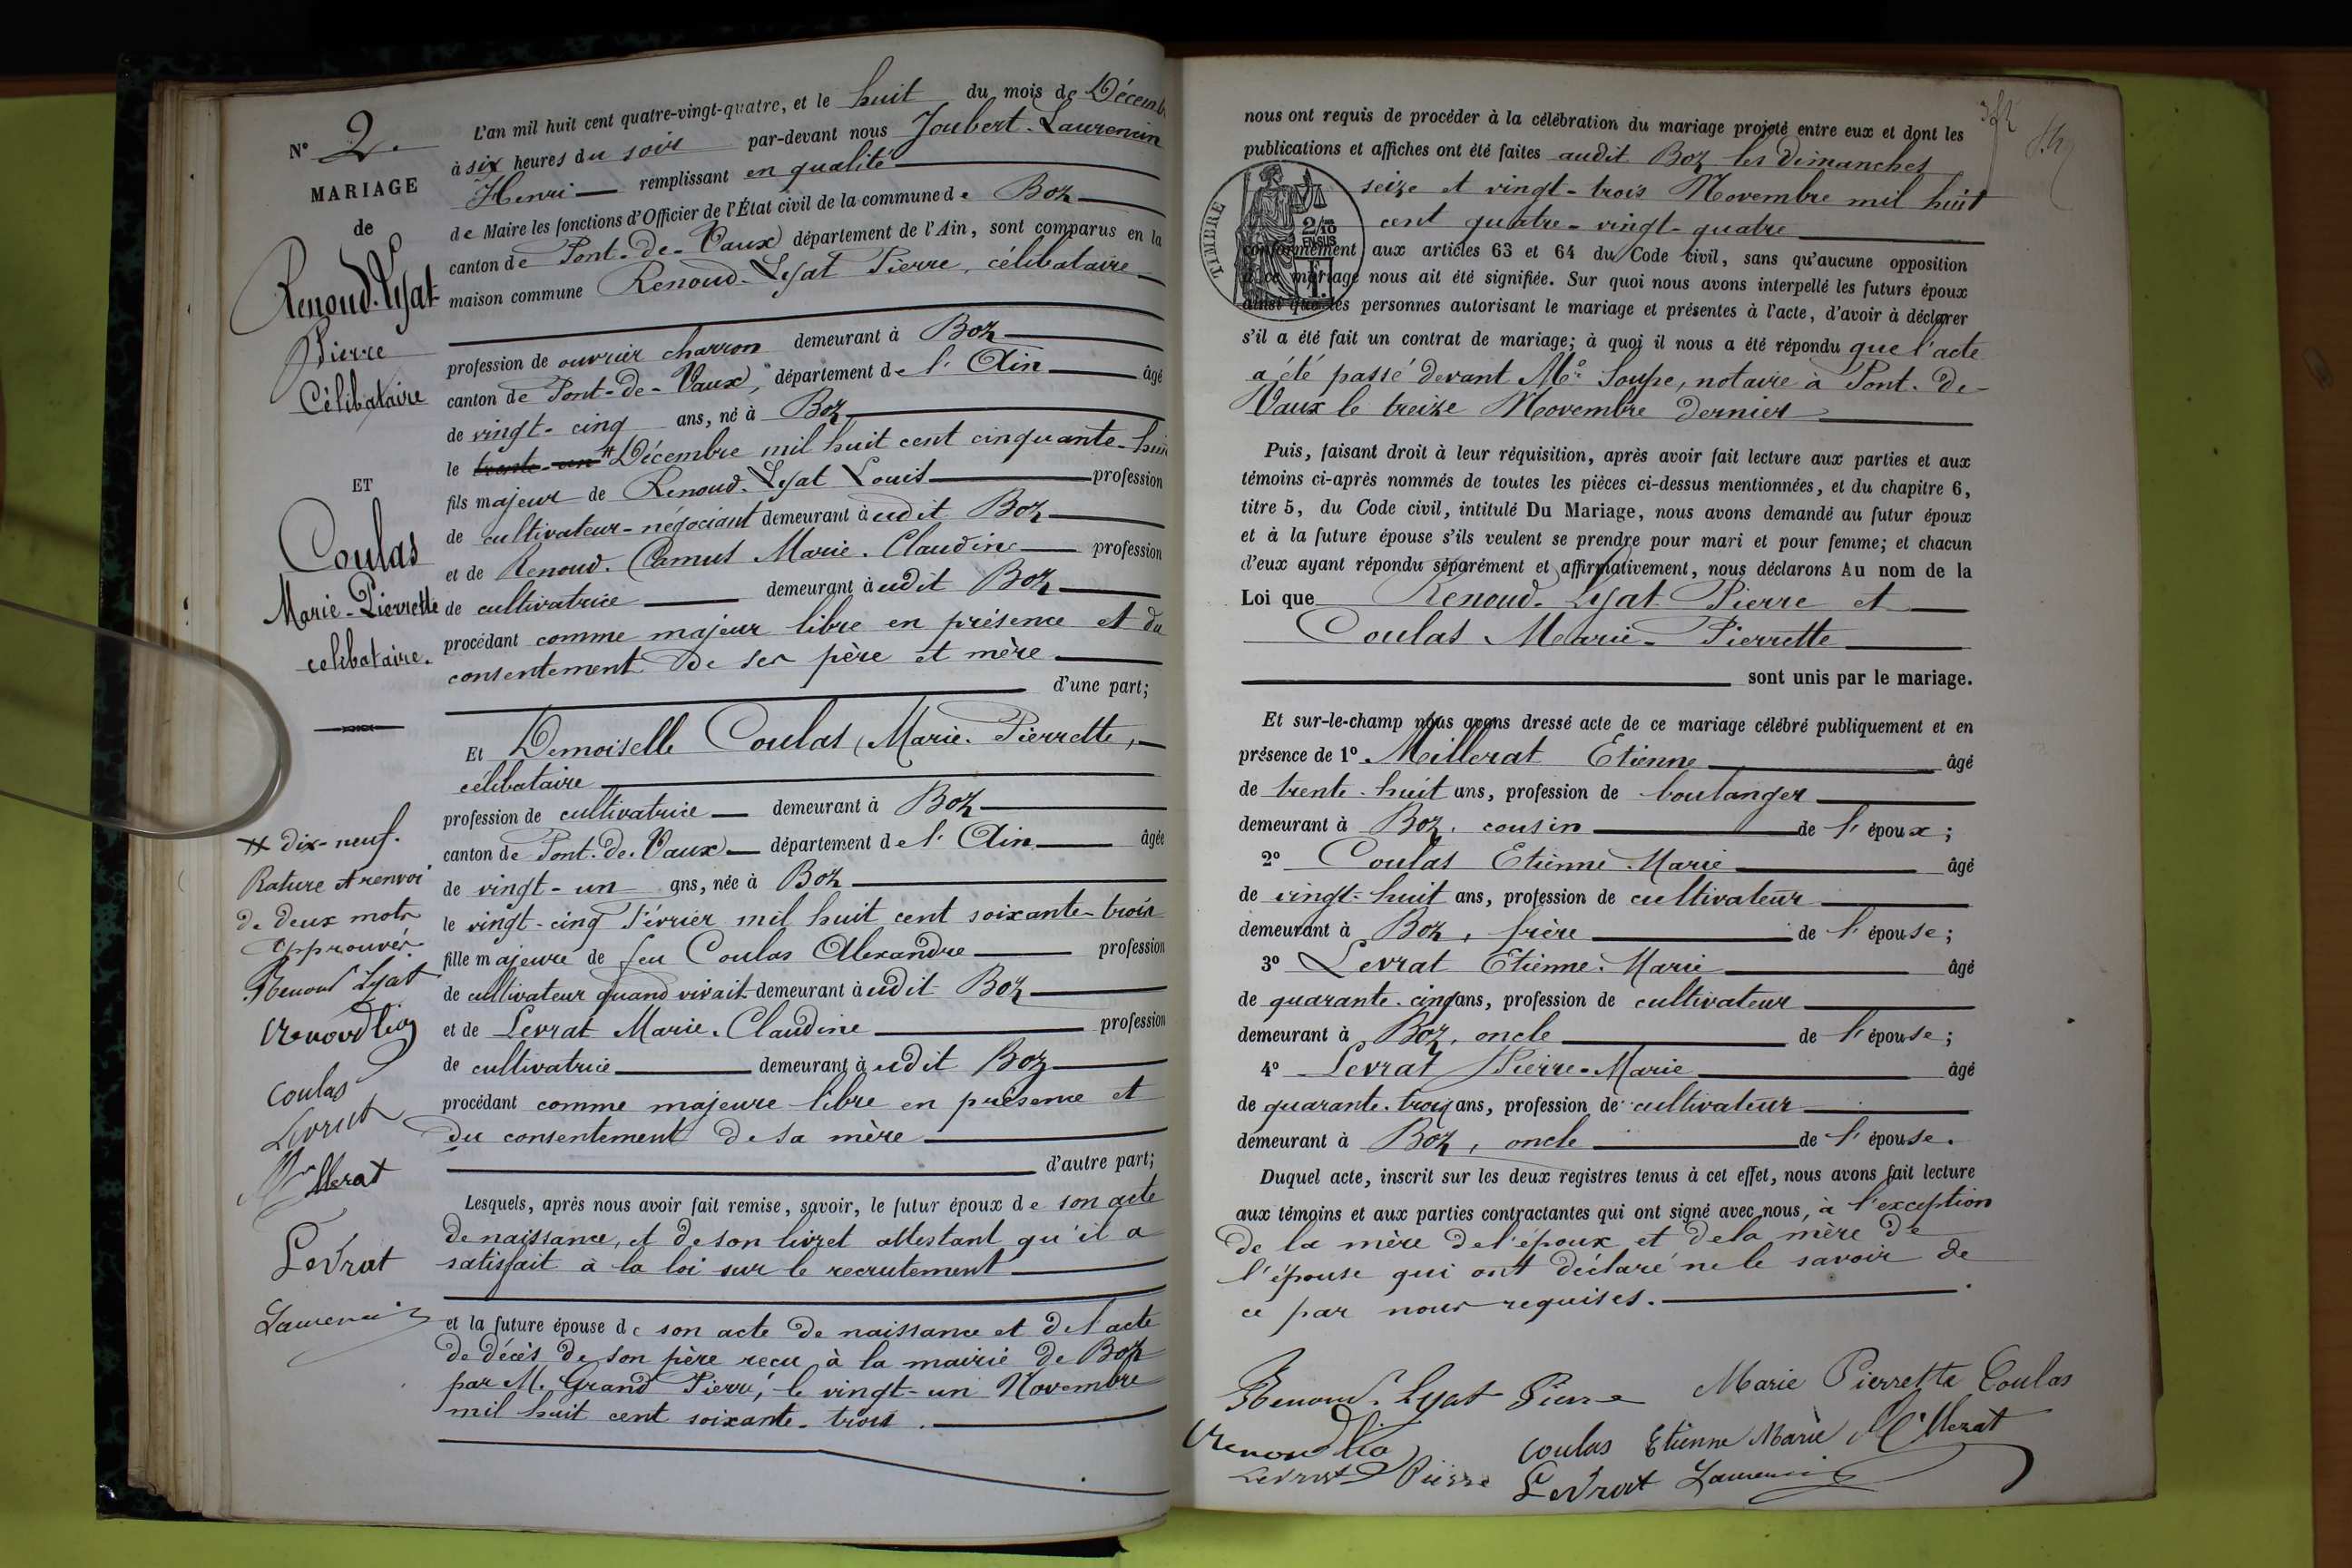 N° 2.
MARIAGE
de
Renoud-Lyat
Pierre
Célibataire
ET
Coulas
Marie-Pierrette
célibataire.
# dix-neuf.
Rature et renvoi
de deux mots
approuvés
Renoud Lyat
Coulas
Levrat
Millerat
Levrat
Laurencin
L'an mil huit cent quatre-vingt-quatre, et le huit du mois de Décemb
à six heures du soir par-devant nous Joubert-Laurencin
Henri remplissant en qualité
de Maire les fonctions d'Officier de l'État civil de la commune de Boz
canton de Pont-de-Vaux département de l'Ain, sont comparus en la
maison commune Renoud-Lyat Pierre, célibataire
profession de ouvrier charron demeurant à Boz
canton de Pont-de-Vaux, département de l'Ain âgé
de vingt-cinq ans, né à Boz
le trente-un # Décembre mil huit cent cinquante-hui
fils majeur de Renoud-Lyat Louis profession
de cultivateur-négociant demeurant àudit Boz
et de Renoud-Camus Marie-Claudine profession
de cultivatrice demeurant àudit Boz
procédant comme majeur libre en présence et du
consentement de ses père et mère
d'une part;
Et Demoiselle Coulas, Marie-Pierrette,
célibataire
profession de cultivatrice demeurant à Boz
canton de Pont-de-Vaux département de l'Ain âgée
de vingt-un ans, née à Boz
le vingt-cinq Février mil huit cent soixante-trois
fille majeure de feu Coulas Alexandre profession
de cultivateur quand vivait demeurant àudit Boz
et de Levrat Marie-Claudine profession
de cultivatrice demeurant àudit Boz
procédant comme majeure libre en présence et
du consentement de sa mère
d'autre part;
Lesquels, après nous avoir fait remise, savoir, le futur époux de son acte
de naissance, et de son livret attestant qu'il a
satisfait à la loi sur le recrutement
et la future épouse de son acte de naissance et de l'acte
de décès de son père reçu à la mairie de Boz
par M. Grand Pierre, le vingt-un Novembre
mil huit cent soixante-trois.
nous ont requis de procéder à la célébration du mariage projeté entre eux et dont les
publications et affiches ont été faites audit Boz les dimanches
seize et vingt-trois Novembre mil huit
cent quatre-vingt-quatre
TIMBRE
2/10
EN SUS
conformément aux articles 63 et 64 du Code civil, sans qu'aucune opposition
à ce mariage nous ait été signifiée. Sur quoi nous avons interpellé les futurs époux
ainsi que les personnes autorisant le mariage et présentes à l'acte, d'avoir à déclarer
s'il a été fait un contrat de mariage; à quoi il nous a été répondu que l'acte
a été passé devant Me Soupe, notaire à Pont-de-
Vaux le treize Novembre dernier
Puis, faisant droit à leur réquisition, après avoir fait lecture aux parties et aux
témoins ci-après nommés de toutes les pièces ci-dessus mentionnées, et du chapitre 6,
titre 5, du Code civil, intitulé Du Mariage, nous avons demandé au futur époux
et à la future épouse s'ils veulent se prendre pour mari et pour femme; et chacun
d'eux ayant répondu séparément et affirmativement, nous déclarons Au nom de la
Loi que Renoud-Lyat Pierre et
Coulas Marie-Pierrette
sont unis par le mariage.
Et sur-le-champ nous avons dressé acte de ce mariage célébré publiquement et en
présence de 1° Millerat Etienne âgé
de trente-huit ans, profession de boulanger
demeurant à Boz, cousin de l'époux;
2° Coulas Etienne-Marie âgé
de vingt-huit ans, profession de cultivateur
demeurant à Boz, frère de l'épouse;
3° Levrat Etienne-Marie âgé
de quarante-cinq ans, profession de cultivateur
demeurant à Boz, oncle de l'épouse;
4° Levrat Pierre-Marie âgé
de quarante-trois ans, profession de cultivateur
demeurant à Boz, oncle de l'épouse.
Duquel acte, inscrit sur les deux registres tenus à cet effet, nous avons fait lecture
aux témoins et aux parties contractantes qui ont signé avec nous, à l'exception
de la mère de l'époux et de la mère de
l'épouse qui ont déclaré ne le savoir de
ce par nous requises.
Renoud-Lyat Pierre Marie Pierrette Coulas
Coulas Etienne Marie Millerat
Levrat Pierre Levrat Laurencin